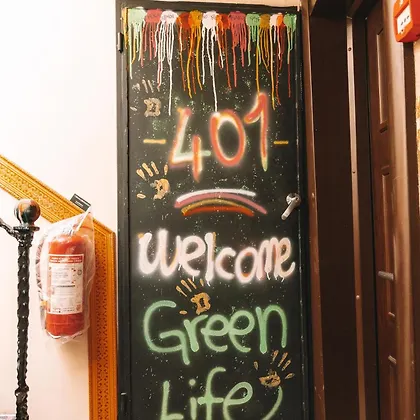 -401-
welcome
Green
Life